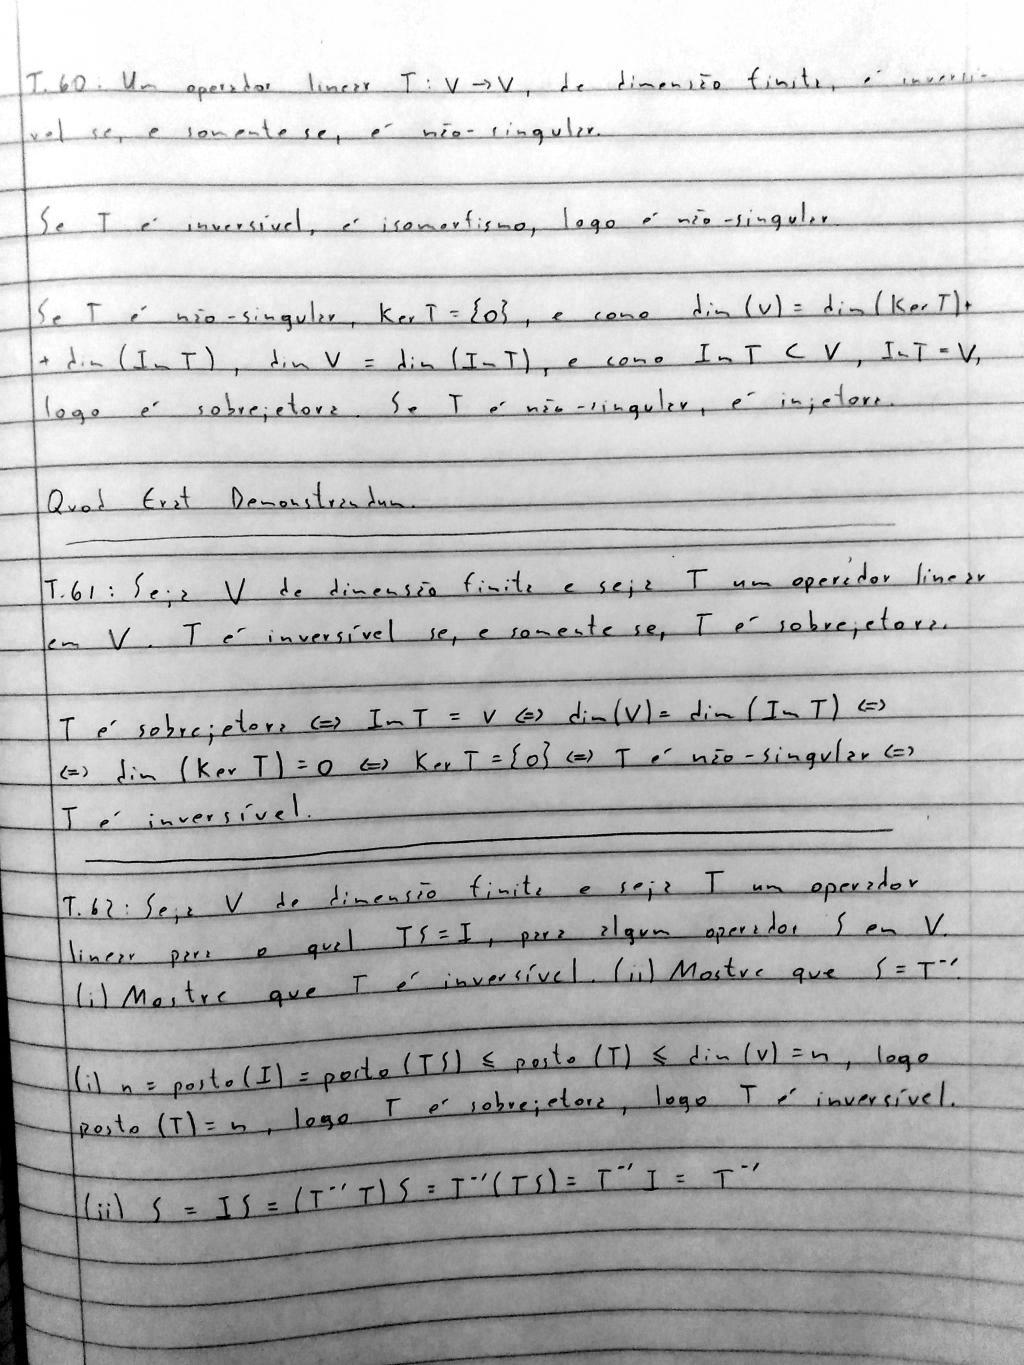 T.60: Um operador linear T: V → V, de dimensão finita, é inversí-
vel se, e somente se, é não-singular.
Se T é inversível, é isomorfismo, logo é não-singular
Se T é não-singular, Ker T = {0}, e como dim (V) = dim (Ker T) +
+ dim (Im T), dim V = dim (Im T), e como Im T ⊂ V, Im T = V,
logo é sobrejetora. Se T é não-singular, é injetora.
Quod Erat Demonstrandum.
T.61: Seja V de dimensão finita e seja T um operador linear
em V. T é inversível se, e somente se, T é sobrejetora.
T é sobrejetora ⇔ Im T = V ⇔ dim(V) = dim (Im T) ⇔
⇔ dim (Ker T) = 0 ⇔ Ker T = {0} ⇔ T é não-singular ⇔
T é inversível.
T.62: Seja V de dimensão finita e seja T um operador
linear para o qual TS = I, para algum operador S em V.
(i) Mostre que T é inversível. (ii) Mostre que S = T⁻¹.
(i) n = posto (I) = posto (TS) ≤ posto (T) ≤ dim (V) = n, logo
posto (T) = n, logo T é sobrejetora, logo T é inversível.
(ii) S = IS = (T⁻¹ T) S = T⁻¹ (TS) = T⁻¹ I = T⁻¹